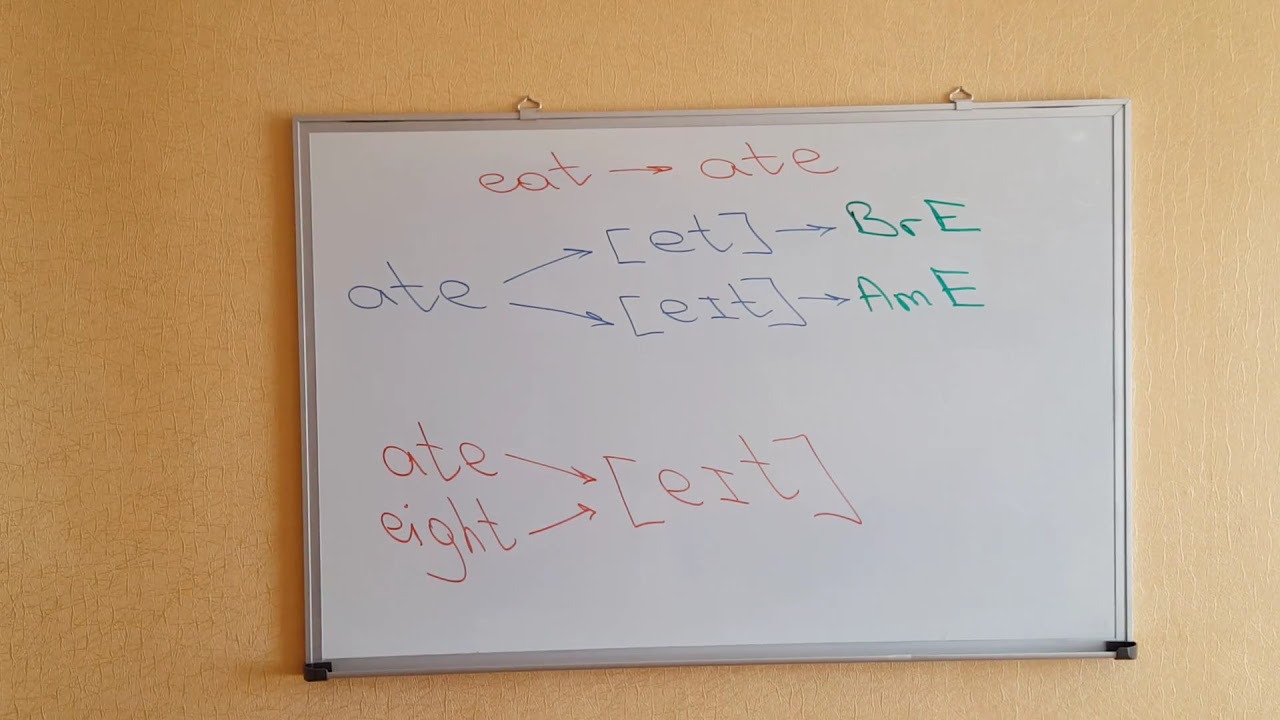 eat → ate
[et] → BrE
ate
[eɪt] → AmE
ate
[eɪt]
eight